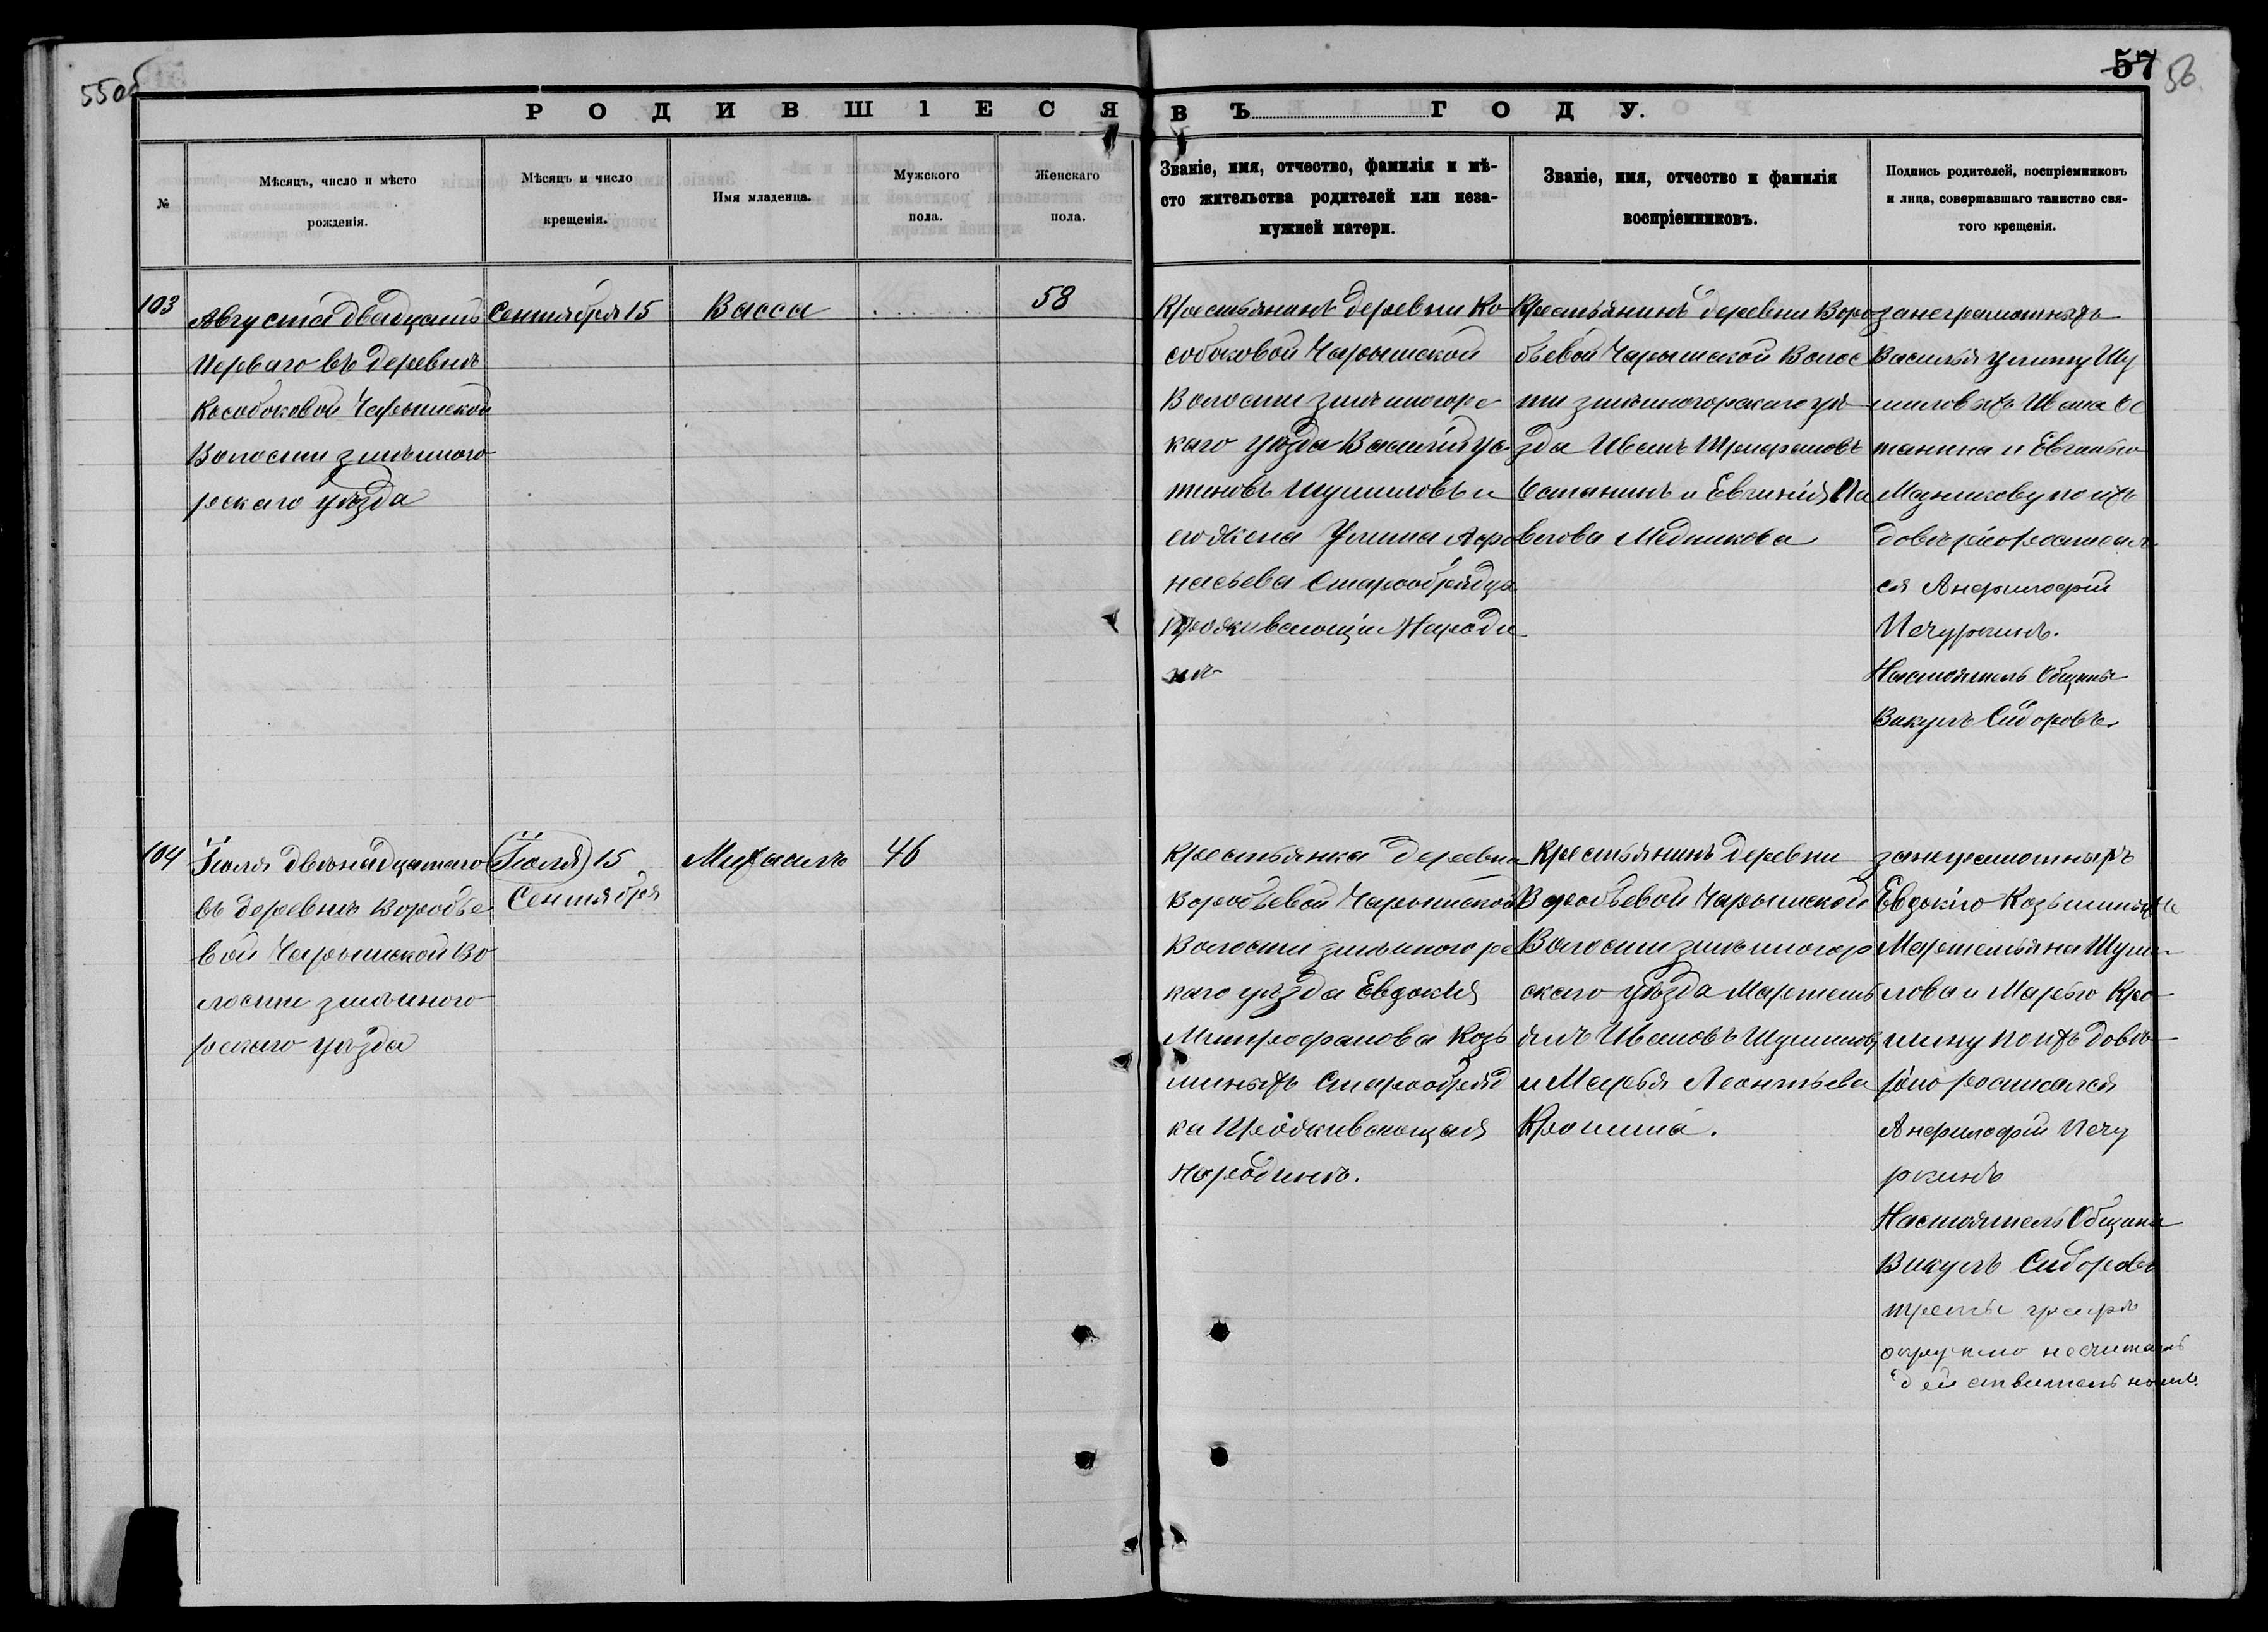 55об
57 56
РОДИВШІЕСЯ ВЪ ГОДУ.
№
Мѣсяцъ, число и мѣсто
рожденія.
Мѣсяцъ и число
крещенія.
Имя младенца.
Мужского
пола.
Женскаго
пола.
Званіе, имя, отчество, фамилія и мѣ-
сто жительства родителей или неза-
мужней матери.
Званіе, имя, отчество и фамилія
воспріемниковъ.
Подпись родителей, воспріемниковъ
и лица, совершавшаго таинство свя-
того крещенія.
103
Августа двадцать
перваго въ деревнѣ
Кособоковой Чарышской
Волости змѣиного
рскаго уѣзда
Сентября 15
Васса
58
Крестьянинъ деревни Ко
собоковой Чарышской
Волости змѣиногорс
каго уѣзда Василій Ус
тиновъ Шумиловъ и
его жена Улина Афо
насьева Старообрядца
Проживающіи Народи
нѣ
Крестьянинъ деревни Воро
бьевой Чарышской Волос
ти змѣиногорскаго уѣ
зда Иванъ Трифоновъ
Останинъ и Евгинія Па
велова Медникова
занеграмотныхъ
Василья Улину Шу
миловыхъ Ивана Ос
танина и Евгинью
Медникову по ихъ
довѣрію росписал
ся Анфилофій
Печуркинъ.
Настоятель Общины
Викулъ Сидоровъ.
104
Іюля двенадцатаго
въ деревнѣ Воробье
вой Чарышской Во
лости змѣиного
рскаго уѣзда
(Іюля) 15
Сентября
Михаилъ
46
Крестьянка деревни
Воробьевой Чарышской
Волости змѣиногорс
каго уѣзда Евдокия
Митрофанова Козь
миныхъ Старообряд
ка Проживающая
Народинѣ.
Крестьянинъ деревни
Воробьевой Чарышской
Волости змѣиногор
скаго уѣзда Мартемь
янъ Ивановъ Шумиловъ
и Марья Леонтьева
Кронина.
занеграмотныхъ
Евдокію Козьминыхъ
Мартемьяна Шуми
лова и Марью Кро
нину по ихъ довѣ
рію росписался
Анфилофій Печу
ркинъ
Настоятель Общины
Викулъ Сидоровъ
третьи графѣ
окружно несчитать
действительным.